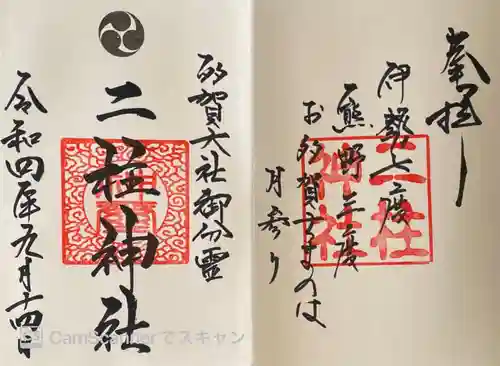 奉拝
伊勢七度
熊野三度
お多賀さまは
月参り
二柱
神社
多賀大社御分霊
二柱神社
令和四年九月十四日
CamScannerでスキャン